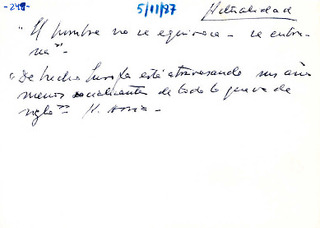 -249- 5/11/87 Actualidad
"El hombre no se equivoca - se entre-
na".
"De hecho Europa está atravesando sus años
menos de todo lo que va de
siglo" H.